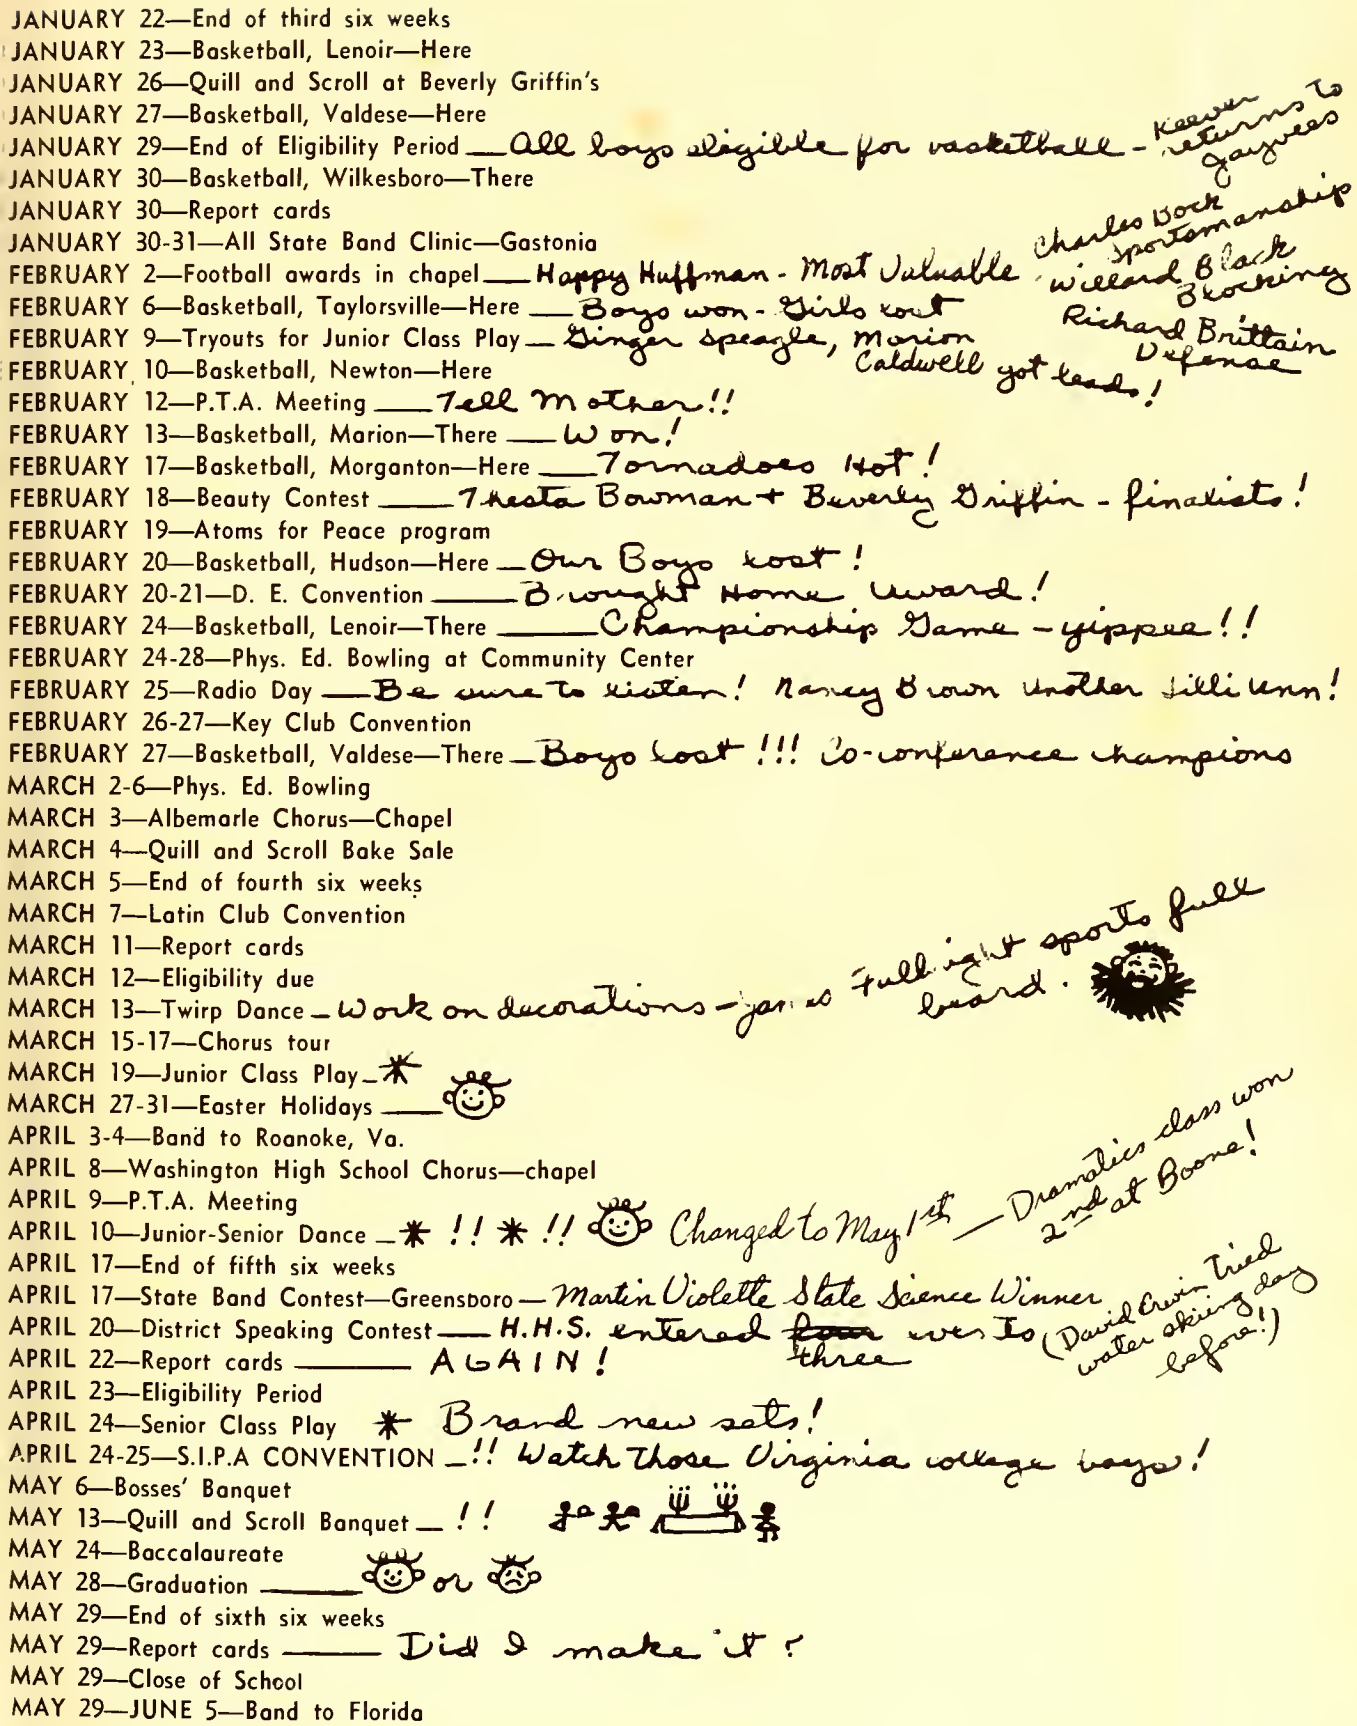 JANUARY 22—End of third six weeks
JANUARY 23—Basketball, Lenoir—Here
JANUARY 26—Quill and Scroll at Beverly Griffin's
JANUARY 27—Basketball, Valdese—Here
JANUARY 29—End of Eligibility Period — All boys eligible for basketball - Keever returns to Jayvees
JANUARY 30—Basketball, Wilkesboro—There
JANUARY 30—Report cards
JANUARY 30-31—All State Band Clinic—Gastonia
FEBRUARY 2—Football awards in chapel — Happy Huffman - Most Valuable Charles Bock Sportsmanship Willard Black Blocking Richard Brittain Defense
FEBRUARY 6—Basketball, Taylorsville—Here — Boys won - Girls lost
FEBRUARY 9—Tryouts for Junior Class Play — Ginger Speagle, Marion Caldwell got leads!
FEBRUARY 10—Basketball, Newton—Here
FEBRUARY 12—P.T.A. Meeting — Tell Mother!!
FEBRUARY 13—Basketball, Marion—There — Won!
FEBRUARY 17—Basketball, Morganton—Here — Tornadoes Hot!
FEBRUARY 18—Beauty Contest — Thesta Bowman + Beverly Griffin - finalists!
FEBRUARY 19—Atoms for Peace program
FEBRUARY 20—Basketball, Hudson—Here — Our Boys lost!
FEBRUARY 20-21—D. E. Convention — Brought Home Award!
FEBRUARY 24—Basketball, Lenoir—There — Championship Game - yippee!!
FEBRUARY 24-28—Phys. Ed. Bowling at Community Center
FEBRUARY 25—Radio Day — Be sure to listen! Nancy Brown Another Jilli Ann!
FEBRUARY 26-27—Key Club Convention
FEBRUARY 27—Basketball, Valdese—There — Boys lost!!! Co-conference champions
MARCH 2-6—Phys. Ed. Bowling
MARCH 3—Albemarle Chorus—Chapel
MARCH 4—Quill and Scroll Bake Sale
MARCH 5—End of fourth six weeks
MARCH 7—Latin Club Convention
MARCH 11—Report cards
MARCH 12—Eligibility due
MARCH 13—Twirp Dance — Work on decorations - James Fullbright sports full beard.
MARCH 15-17—Chorus tour
MARCH 19—Junior Class Play — *
MARCH 27-31—Easter Holidays —
APRIL 3-4—Band to Roanoke, Va.
APRIL 8—Washington High School Chorus—chapel
APRIL 9—P.T.A. Meeting
APRIL 10—Junior-Senior Dance — * !! * !! Changed to May 1st — Dramatics class won 2nd at Boone!
APRIL 17—End of fifth six weeks
APRIL 17—State Band Contest—Greensboro — Martin Violette State Science Winner
APRIL 20—District Speaking Contest — H.H.S. entered four three events (David Erwin tried water skiing day before!)
APRIL 22—Report cards — AGAIN!
APRIL 23—Eligibility Period
APRIL 24—Senior Class Play * Brand new sets!
APRIL 24-25—S.I.P.A CONVENTION — !! Watch Those Virginia college boys!
MAY 6—Bosses' Banquet
MAY 13—Quill and Scroll Banquet — !!
MAY 24—Baccalaureate
MAY 28—Graduation — or
MAY 29—End of sixth six weeks
MAY 29—Report cards — Did I make it?
MAY 29—Close of School
MAY 29—JUNE 5—Band to Florida